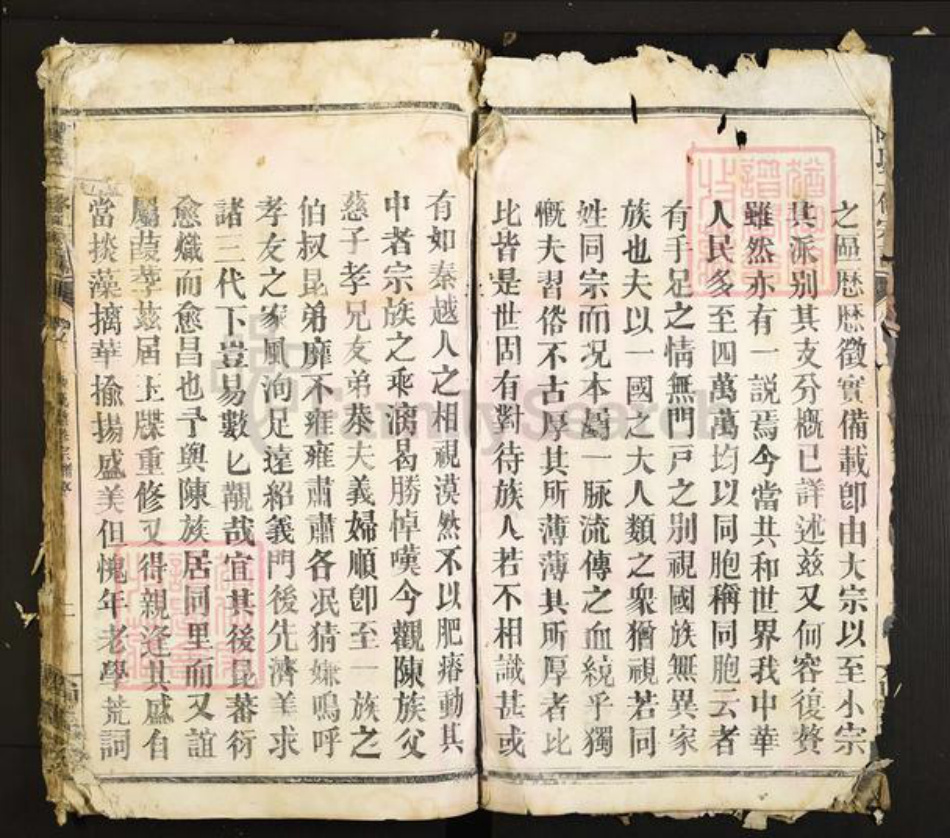 之區歷歷徵實備載卽由大宗以至小宗
其派别其支分概已詳述茲又何容復贅
雖然亦有一説焉今當共和世界我中華
人民多至四萬萬均以同胞稱同胞云者
有手足之情無門戸之别視國族無異家
族也夫以一國之大人類之衆猶視若同
姓同宗而况本屬一脉流傳之血統乎獨
慨夫習俗不古厚其所薄薄其所厚者比
比皆是世固有對待族人若不相識甚或
有如秦越人之相視漠然不以肥瘠動其
中者宗族之乖漓曷勝悼嘆今觀陳族父
慈子孝兄友弟恭夫義婦順卽至一族之
伯叔昆弟靡不雍雍肅肅各泯猜嫌嗚呼
孝友之家風洵足遠紹義門後先濟美求
諸三代下豈易數匕覯哉宜其後昆蕃衍
愈熾而愈昌也予與陳族居同里而又誼
屬葭莩茲屆玉牒重修又得親逢其盛自
當掞藻摛華揄揚盛美但愧年老學荒詞
FamilySearch